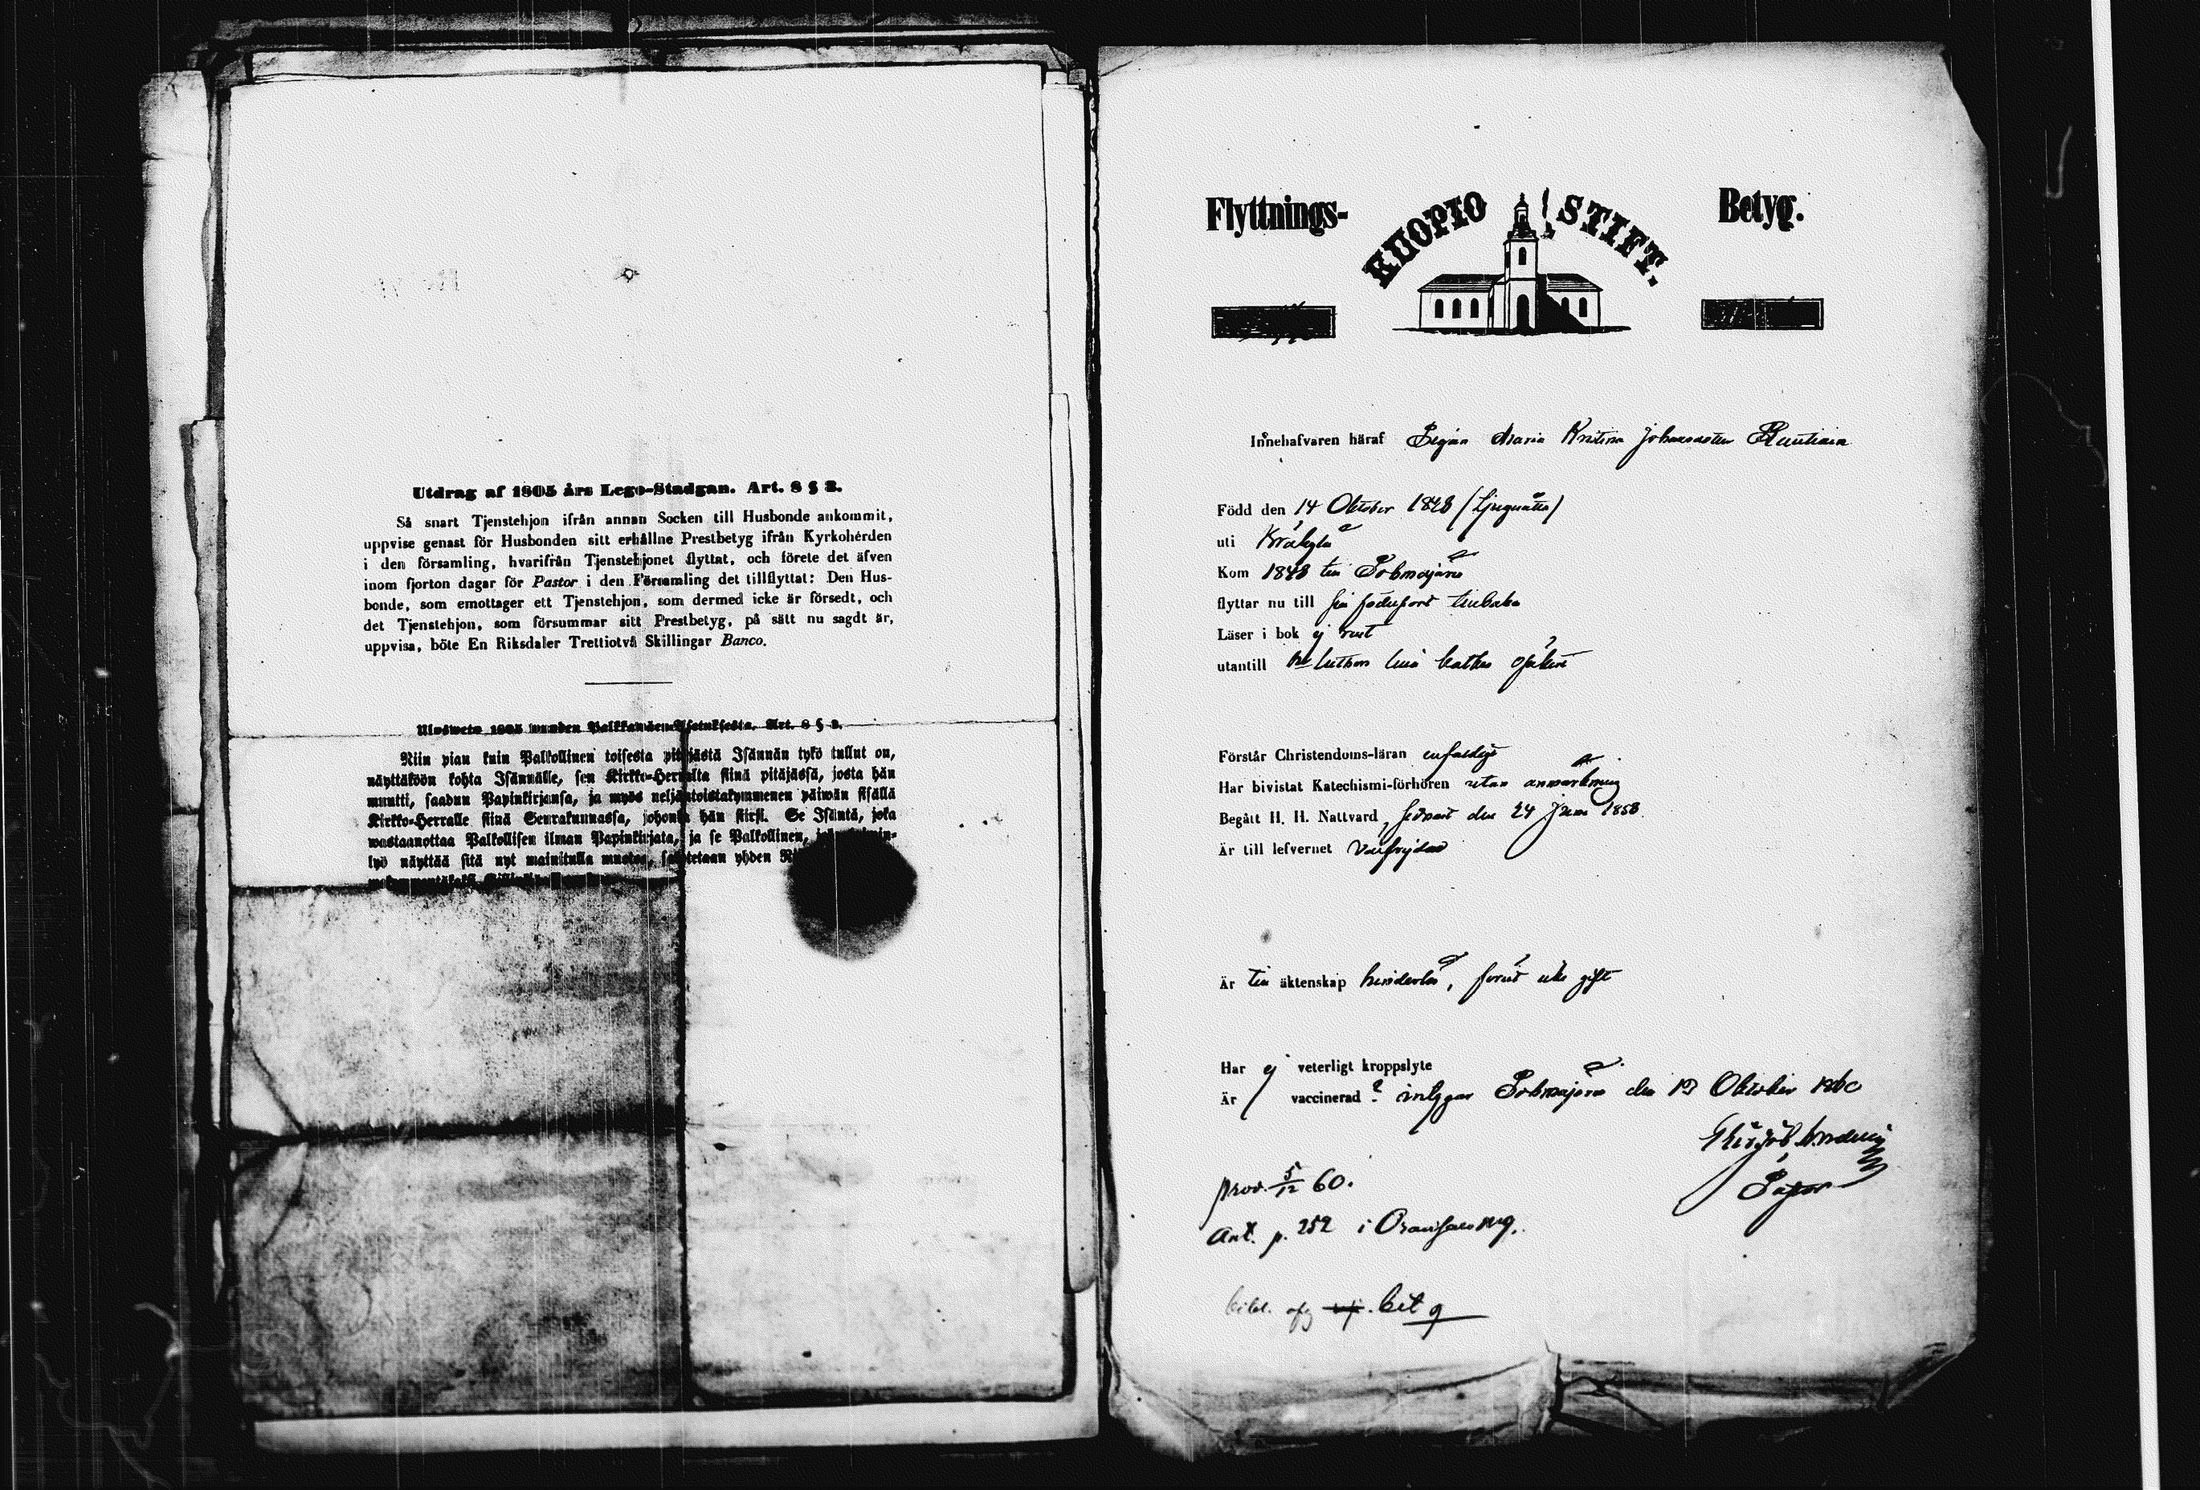 Utdrag af 1805 års Lego-Stadgan. Art. 8 § 2.
Så snart Tjenstehjon ifrån annan Socken till Husbonde ankommit,
uppvise genast för Husbonden sitt erhållne Prestbetyg ifrån Kyrkoherden
i den församling, hvarifrån Tjenstehjonet flyttat, och förete det äfven
inom fjorton dagar för Pastor i den Församling det tillflyttat: Den Hus-
bonde, som emottager ett Tjenstehjon, som dermed icke är försedt, och
det Tjenstehjon, som försummar sitt Prestbetyg, på sätt nu sagdt är,
uppvisa, böte En Riksdaler Trettiotvå Skillingar Banco.
Ulosweto 1805 wuoden Palkkawäen Asetuksesta. Art. 8 § 2.
Niin pian kuin Palkollinen toisesta pitäjästä Isännän tykö tullut on,
näyttäköön kohta Isännälle, sen Kirkko-Herralta siinä pitäjässä, josta hän
muutti, saadun Papinkirjansa, ja myös neljäntoistakymmenen päiwän sisällä
Kirkko-Herralle siinä Seurakunnassa, johonka hän siirsi. Se Isäntä, joka
wastaanottaa Palkollisen ilman Papinkirjata, ja se Palkollinen,
lyö näyttää sitä nyt mainitulla muotoa, sakotetaan yhden
Flyttnings- KUOPIO STIFT. Betyg.
Innehafvaren häraf Pigan Maria Kristina Johansdotter
Född den 14 Oktober 1843
uti
Kom 1843 till
flyttar nu till sin födelseort tillbaka
Läser i bok ej rent
utantill
Förstår Christendoms-läran enfaldigt
Har bivistat Katechismi-förhören utan anmärkning
Begått H. H. Nattvard, senast den 24 Juni 1858.
Är till lefvernet välfrejdad
Är till äktenskap hinderlös, förut icke gift
Har ej veterligt kroppslyte
Är vaccinerad? intygar den Oktober 1860
Pastor
prod. 5/12 60.
Ant. p. 252 i
bit 9